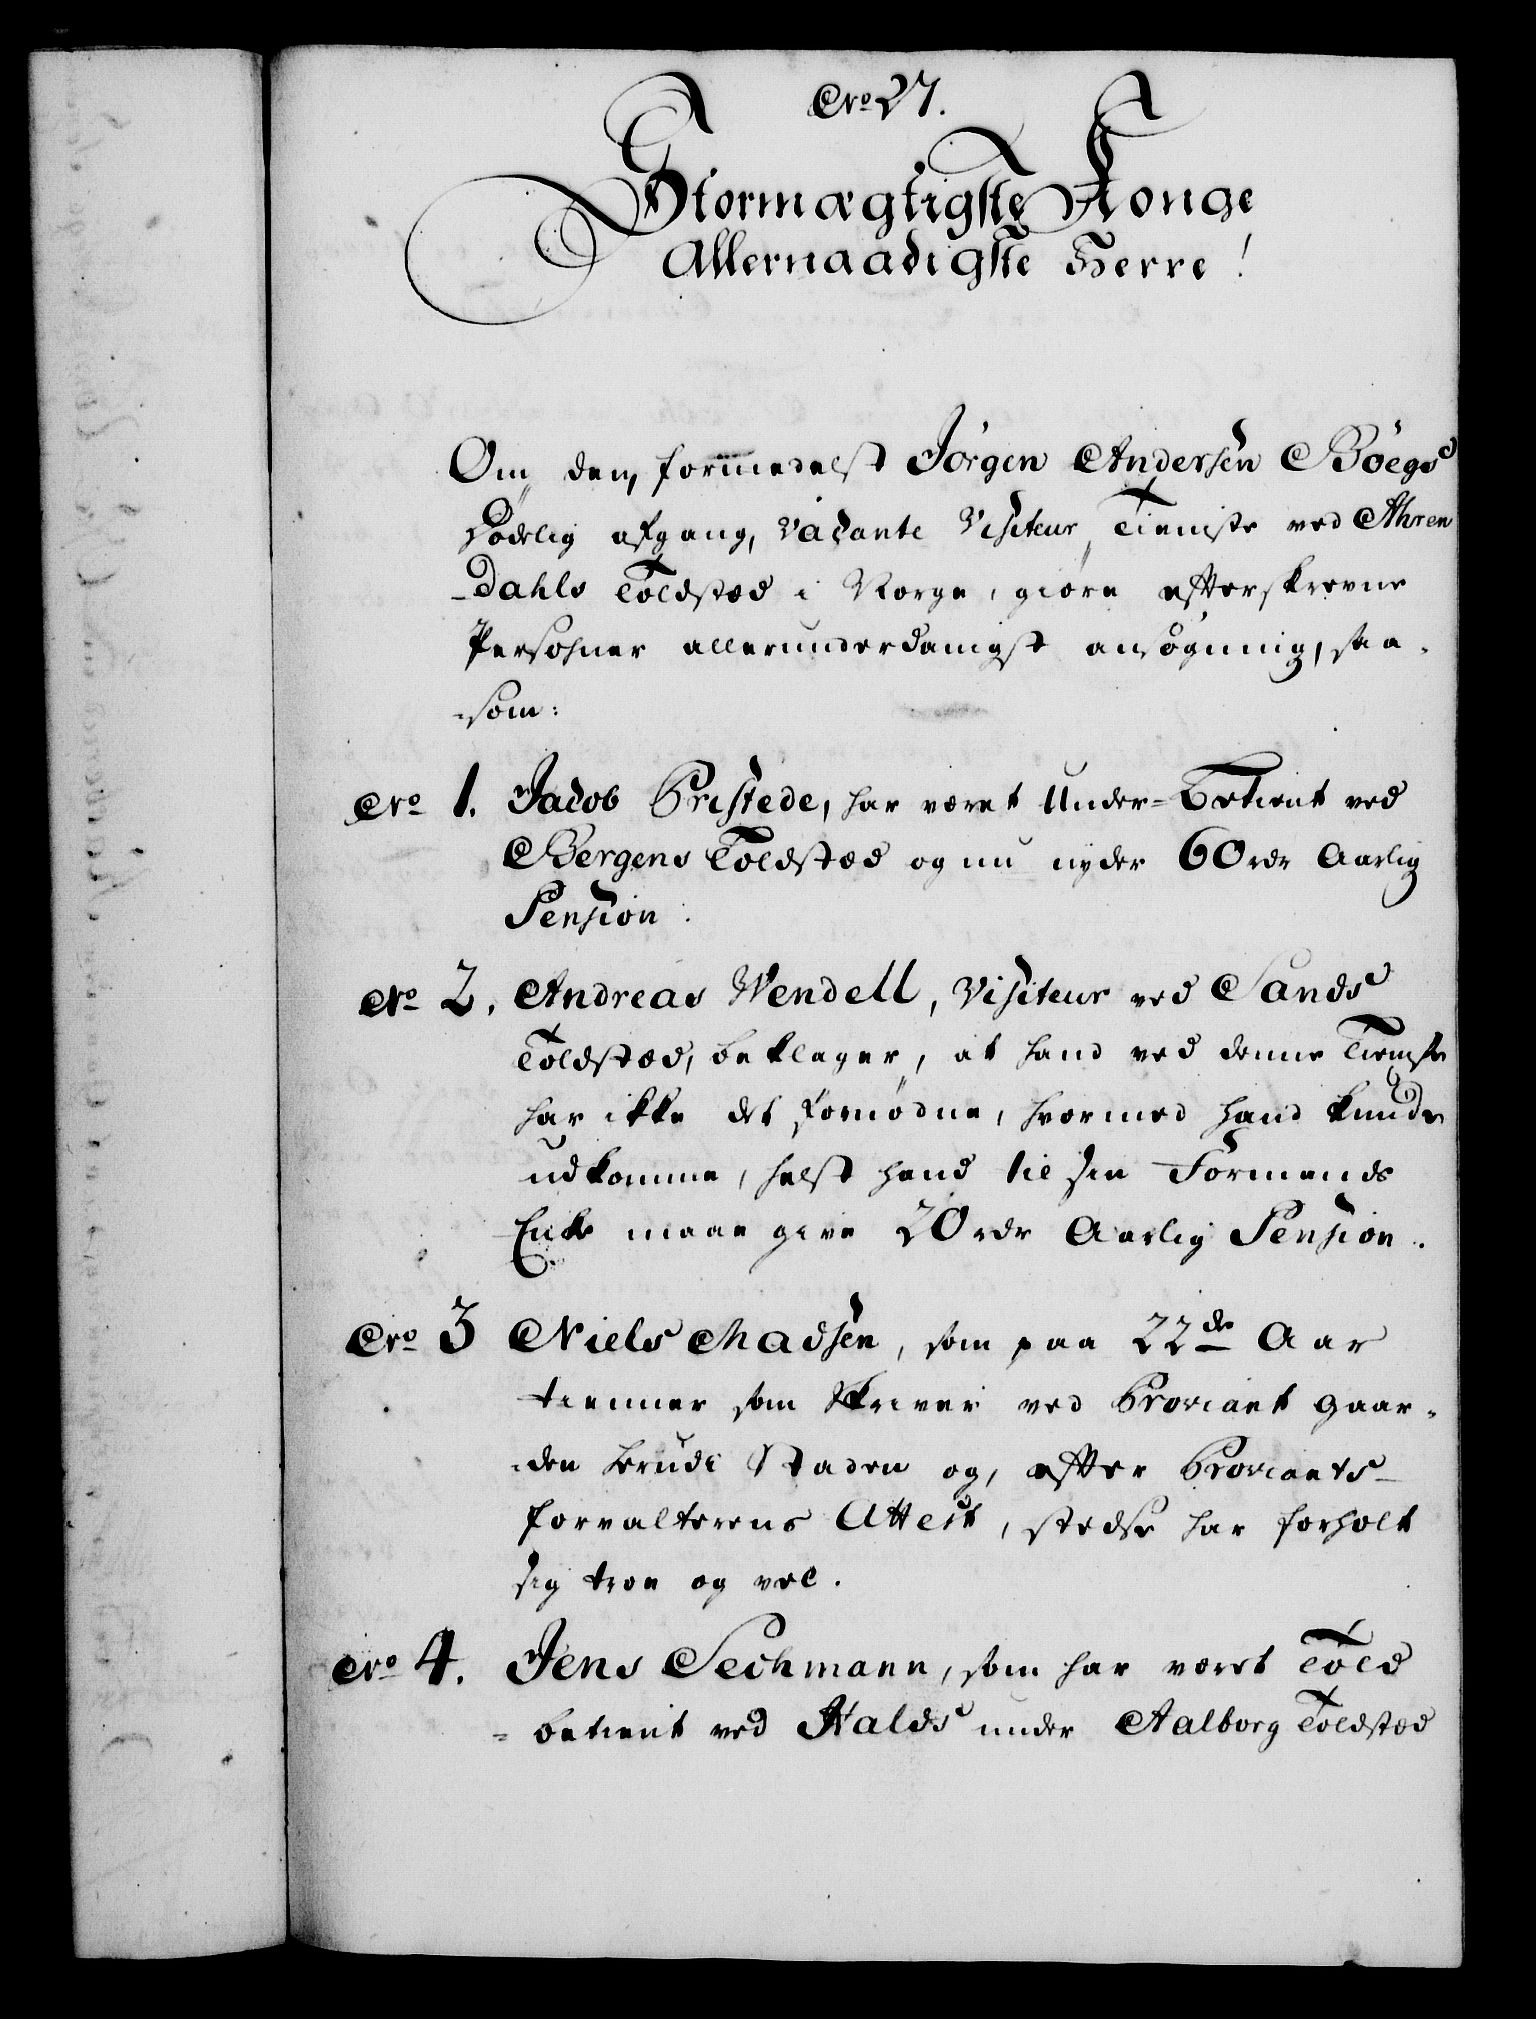 Nro 27.
Stormægtigste Konge
Allernaadigste Herre!
Om den, formedelst Jörgen Andersen Böegs
dödelig afgang, vacante Visiteur Tieniste ved Ahren
-dahls Toldsted i Norge, giöre efterskrevne
Persohner allerunderdanigst ansögning, saa-
-som:
Nro 1. Jacob Pristede, har været Under-Betient ved
Bergens Toldsted og nu nyder 60 rdr Aarlig
Pension.
Nro 2. Andreas Wendell, Visiteur ved Sands
Toldsted, beklager, at hand ved denne Tieniste
har ikke det fornödne, hvormed hand kunde
udkomme, helst hand til sin Formands
Enke maae give 20 rdr Aarlig Pension.
Nro 3 Niels Madsen, som paa 22de Aar
tienner som Skriver ved Proviant gaar-
-den herudi Staden og, efter Proviants-
forvalterens Attest, stedse har forholt
sig troe og vel.
Nro 4. Jens Sechmann, som har været Told
-betient ved Hals under Aalborg Toldsted